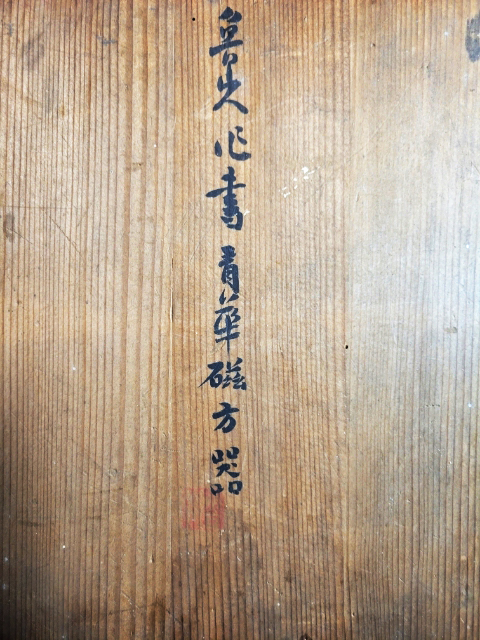 魯山人作書 青華磁方器